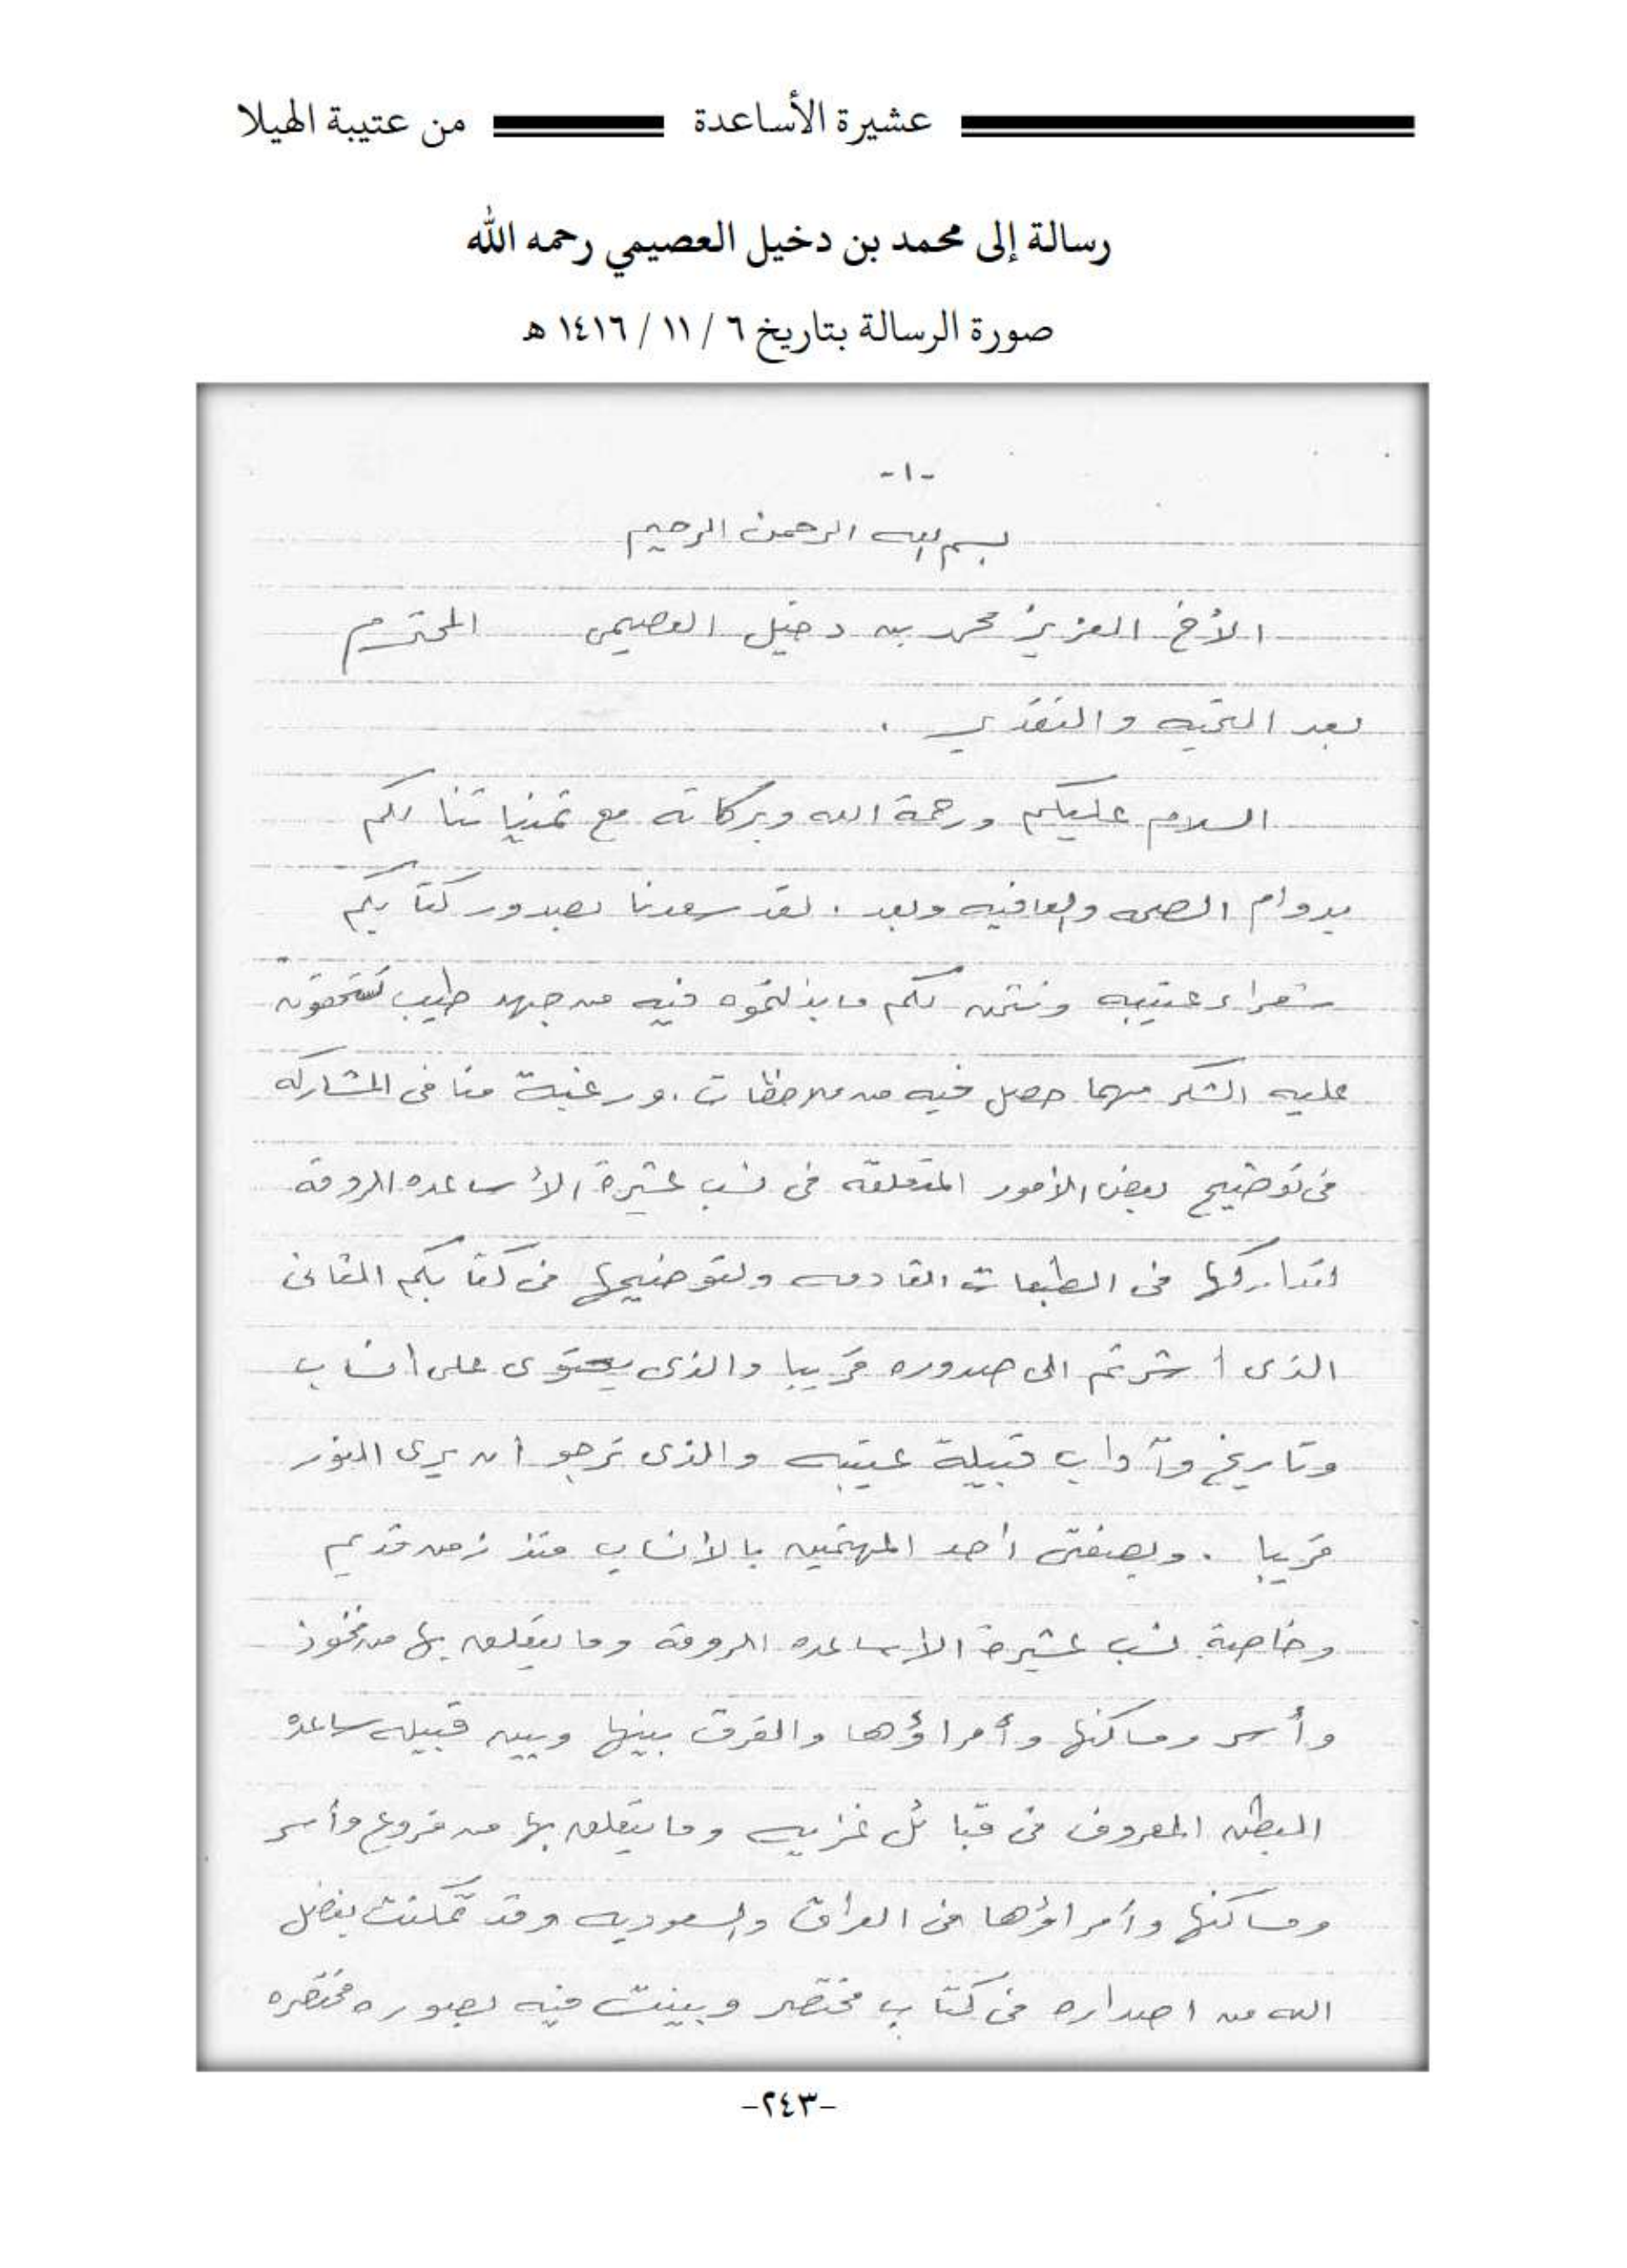 عشيرة الأساعدة من عتيبة الهيلا
رسالة إلى محمد بن دخيل العصيمي رحمه الله
صورة الرسالة بتاريخ ٦ / ١١ / ١٤١٦ هـ
-١-
بسم الله الرحمن الرحيم
الأخ العزيز محمد بن دخيل العصيمي المحترم
بعد التحيه والتقدير .
السلام عليكم ورحمة الله وبركاته مع تمنياتنا لكم
بدوام الصحه والعافيه وبعد . لقد سعدنا بصدور كتابكم
شعراء عتيبه ونثمن لكم ما بذلتموه فيه من جهد طيب تستحقون
عليه الشكر مهما حصل فيه من ملاحظات . ورغبة منا في المشاركه
في توضيح بعض الأمور المتعلقه في نسب عشيرة الأساعده الروقه
لتداركها في الطبعات القادمه ولتوضيحها في كتابكم الثاني
الذى أشرتم الى صدوره قريبا والذى يحتوى على انساب
وتاريخ وآداب قبيلة عتيبه والذى نرجو أن يرى النور
قريبا . وبصفتى أحد المهتمين بالأنساب منذ زمن قديم
وخاصة نسب عشيرة الاساعده الروقه وما يتعلق بها من فخوذ
وأسر ومساكنها وأمراؤها والفرق بينها وبين قبيله ساعده
البطن المعروف في قبائل غزيه وما يتعلق بها من فروع وأسر
ومساكنها وأمراؤها في العراق والسعوديه وقد تمكنت بفضل
الله من اصداره في كتاب مختصر وبينت فيه بصوره مختصره
-٢٤٣-